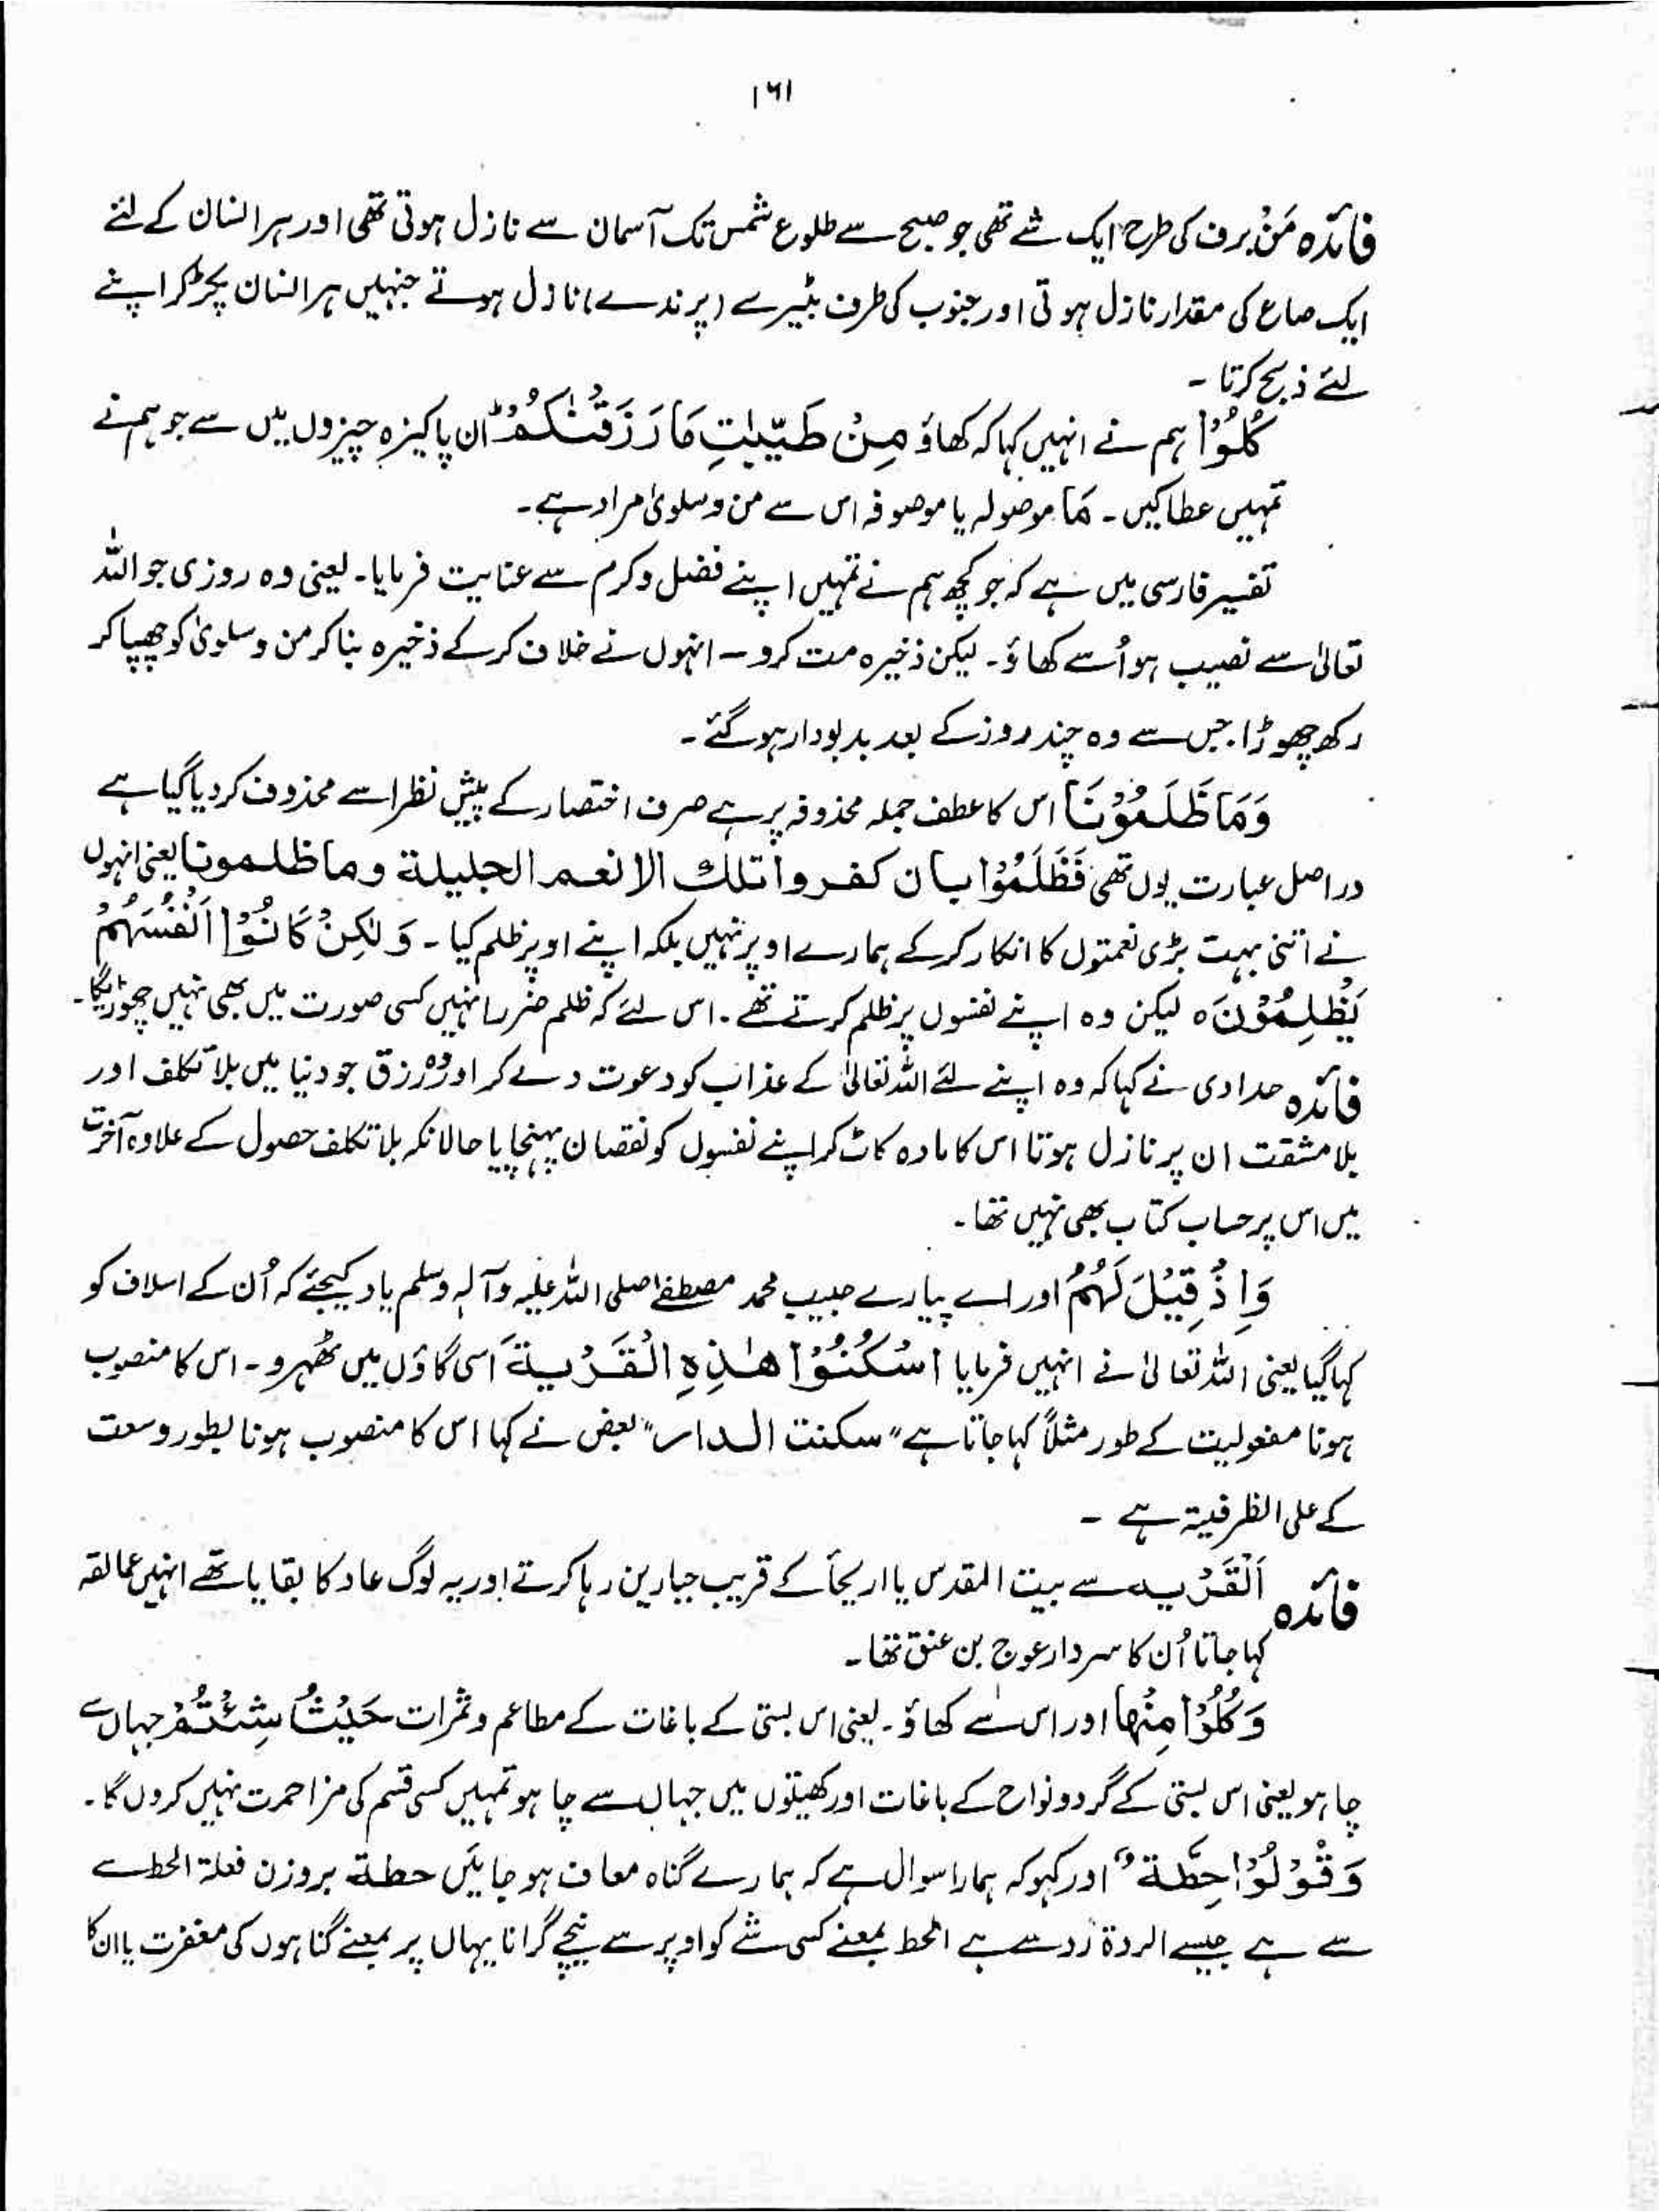 ۱۶۱
فائدہ مَنْ برف کی طرح ایک شے تھی جو صبح سے طلوع شمس تک آسمان سے نازل ہوتی تھی اور ہر انسان کے لئے
ایک صاع کی مقدار نازل ہوتی اور جنوب کی طرف بٹیرے (پرندے) نازل ہوتے جنہیں ہر انسان پکڑ کر اپنے
لئے ذبح کرتا ۔
کُلُوْا ہم نے انہیں کہا کہ کھاؤ مِنْ طَيِّبٰتِ مَا رَزَقْنٰكُمْ ؕ ان پاکیزہ چیزوں میں سے جو ہم نے
تمہیں عطا کیں ۔ مَا موصولہ یا موصوفہ اس سے من و سلویٰ مراد ہے۔
تفسیر فارسی میں ہے کہ جو کچھ ہم نے تمہیں اپنے فضل و کرم سے عنایت فرمایا۔ لیعنی وہ روزی جو اللہ
تعالیٰ سے نصیب ہو اُسے کھاؤ۔ لیکن ذخیرہ مت کرو ۔ انہوں نے خلاف کرکے ذخیرہ بنا کر من و سلویٰ کو چھپا کر
رکھ چھوڑا. جس سے وہ چند روز کے بعد بدبودار ہو گئے ۔
وَمَا ظَلَمُوْنَا اس کا عطف جملہ محذوفہ پر ہے صرف اختصار کے پیش نظر اسے محذوف کر دیا گیا ہے
دراصل عبارت یوں تھی فَظَلَمُوْا بان کفروا تلك الانعم الجلیلة وما ظلمونا یعنی انہوں
نے اتنی بہت بڑی نعمتوں کا انکار کر کے ہمارے اوپر نہیں بلکہ اپنے اوپر ظلم کیا ۔ وَلٰكِنْ كَانُوْا اَنْفُسَهُمْ
يَظْلِمُوْنَ ہ لیکن وہ اپنے نفسوں پر ظلم کرتے تھے ۔ اس لئے کہ ظلم ضرر انہیں کسی صورت میں بھی نہیں چھوڑیگا۔
فائدہ حدادی نے کہا کہ وہ اپنے لئے اللہ تعالیٰ کے عذاب کو دعوت دے کر اور وُہ رزق جو دنیا میں بلا تکلف اور
بلا مشقت ان پر نازل ہوتا اس کا مادہ کاٹ کر اپنے نفسوں کو نقصان پہنچایا حالانکہ بلا تکلف حصول کے علاوہ آخرت
میں اس پر حساب کتاب بھی نہیں تھا ۔
وَاِذْ قِيْلَ لَهُمُ اور اے پیارے حبیب محمد مصطفےٰ صلی اللہ علیہ وآلہ وسلم یاد کیجئے کہ اُن کے اسلاف کو
کہا گیا یعنی اللہ تعالیٰ نے انہیں فرمایا اسْكُنُوْا هٰذِهِ الْقَرْيَةَ اسی گاؤں میں ٹھہرو ۔ اس کا منصوب
ہونا مفعولیت کے طور مثلاً کہا جاتا ہے "سکنت الدار" بعض نے کہا اس کا منصوب ہونا بطور وسعت
کے علی الظرفیۃ ہے ۔
فائدہ اَلْقَرْیہ سے بیت المقدس یا اریحاً کے قریب جبارین رہا کرتے اور یہ لوگ عاد کا بقایا تھے انہیں عمالقہ
کہا جاتا اُن کا سردار عوج بن عنق تھا ۔
وَكُلُوْا مِنْهَا اور اس سے کھاؤ ۔ یعنی اس بستی کے باغات کے مطاعم و ثمرات حَيْثُ شِئْتُمْ جہاں سے
چاہو یعنی اس بستی کے گرد و نواح کے باغات اور کھیتوں میں جہاں سے چاہو تمہیں کسی قسم کی مزاحمت نہیں کروں گا۔
وَقُوْلُوْا حِطَّةٌ اور کہو کہ ہمارا سوال ہے کہ ہمارے گناہ معاف ہو جائیں حطة بروزن فعلة الحط سے
سے ہے جیسے الردة رد سے ہے الحط بمعنے کسی شے کو اوپر سے نیچے گرانا یہاں پر بمعنے گناہوں کی مغفرت یا ان کا